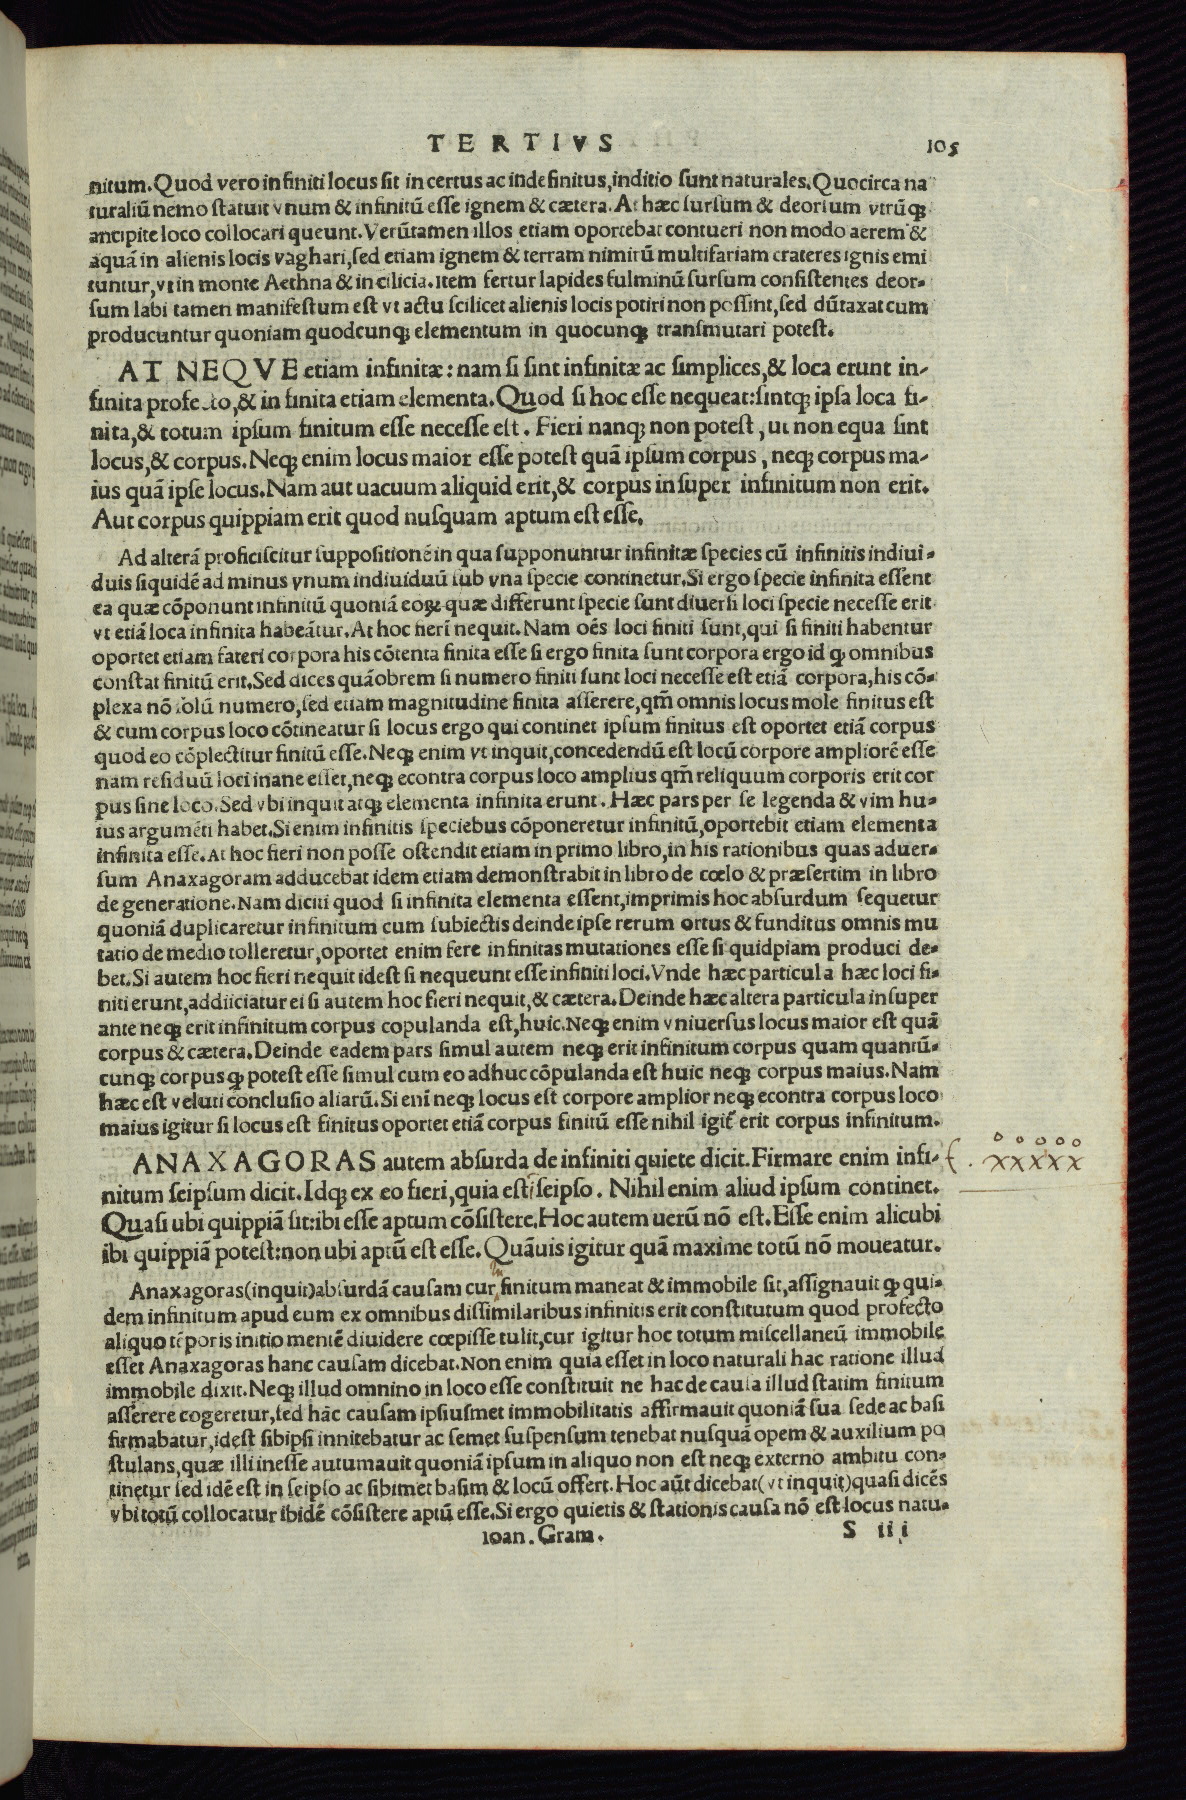 TERTIVS 105
nitum. Quod vero infiniti locus sit incertus ac indefinitus, inditio sunt naturales. Quocirca na
turaliũ nemo statuit vnum & infinitũ esse ignem & cætera. At hæc sursum & deorsum vtrũqꝫ
ancipite loco collocari queunt. Verũtamen illos etiam oportebat contueri non modo aerem &
aquã in alienis locis vaghari, sed etiam ignem & terram nimirũ multifariam crateres ignis emi
tuntur, vt in monte Aethna & in cilicia. item fertur lapides fulminũ sursum consistentes deor-
sum labi tamen manifestum est vt actu scilicet alienis locis potiri non possint, sed dũtaxat cum
producuntur quoniam quodcunqꝫ elementum in quocunqꝫ transmutari potest.
AT NEQVE etiam infinitæ: nam si sint infinitæ ac simplices, & loca erunt in-
finita profecto, & infinita etiam elementa. Quod si hoc esse nequeat: sintqꝫ ipsa loca fi-
nita, & totum ipsum finitum esse necesse est. Fieri nanqꝫ non potest, ut non equa sint
locus, & corpus. Neqꝫ enim locus maior esse potest quã ipsum corpus, neqꝫ corpus ma-
ius quã ipse locus. Nam aut uacuum aliquid erit, & corpus insuper infinitum non erit.
Aut corpus quippiam erit quod nusquam aptum est esse.
Ad alterã proficiscitur suppositionẽ in qua supponuntur infinitæ species cũ infinitis indiui-
duis siquidẽ ad minus vnum indiuiduũ sub vna specie continetur. Si ergo specie infinita essent
ea quæ cõponunt infinitũ quoniã eoꝝ quæ differunt specie sunt diuersi loci specie necesse erit
vt etiã loca infinita habeãtur. At hoc fieri nequit. Nam oẽs loci finiti sunt, qui si finiti habentur
oportet etiam fateri corpora his cõtenta finita esse si ergo finita sunt corpora ergo id ꝙ omnibus
constat finitũ erit. Sed dices quãobrem si numero finiti sunt loci necesse est etiã corpora, his cõ-
plexa nõ solũ numero, sed etiam magnitudine finita asserere, qm̃ omnis locus mole finitus est
& cum corpus loco cõtineatur si locus ergo qui continet ipsum finitus est oportet etiã corpus
quod eo cõplectitur finitũ esse. Neqꝫ enim vt inquit, concedendũ est locũ corpore ampliorẽ esse
nam residuũ loci inane esset, neqꝫ econtra corpus loco amplius qm̃ reliquum corporis erit cor
pus sine loco. Sed vbi inquit atqꝫ elementa infinita erunt. Hæc pars per se legenda & vim hu-
ius argumẽti habet. Si enim infinitis speciebus cõponeretur infinitũ, oportebit etiam elementa
infinita esse. At hoc fieri non posse ostendit etiam in primo libro, in his rationibus quas aduer-
sum Anaxagoram adducebat idem etiam demonstrabit in libro de cœlo & præsertim in libro
de generatione. Nam dicitī quod si infinita elementa essent, imprimis hoc absurdum sequetur
quoniã duplicaretur infinitum cum subiectis deinde ipse rerum ortus & funditus omnis mu
tatio de medio tolleretur, oportet enim fere infinitas mutationes esse si quidpiam produci de-
bet. Si autem hoc fieri nequit idest si nequeunt esse infiniti loci. Vnde hæc particula hæc loci fi-
niti erunt, addiiciatur ei si autem hoc fieri nequit, & cætera. Deinde hæc altera particula insuper
ante neqꝫ erit infinitum corpus copulanda est, huic. Neqꝫ enim vniuersus locus maior est quã
corpus & cætera. Deinde eadem pars simul autem neqꝫ erit infinitum corpus quam quantũ-
cunqꝫ corpus ꝙ potest esse simul cum eo adhuc cõpulanda est huic neqꝫ corpus maius. Nam
hæc est veluti conclusio aliarũ. Si enĩ neqꝫ locus est corpore amplior neqꝫ econtra corpus loco
maius igitur si locus est finitus oportet etiã corpus finitũ esse nihil igit̃ erit corpus infinitum.
ANAXAGORAS autem absurda de infiniti quiete dicit. Firmare enim infi-
nitum seipsum dicit. Idqꝫ ex eo fieri, quia est i seipso. Nihil enim aliud ipsum continet.
Quasi ubi quippiã sit: ibi esse aptum cõsistere. Hoc autem uerũ nõ est. Esse enim alicubi
ibi quippiã potest: non ubi aptũ est esse. Quãuis igitur quã maxime totũ nõ moueatur.
in
Anaxagoras (inquit) absurdã causam cur finitum maneat & immobile sit, assignauit ꝙ qui-
dem infinitum apud eum ex omnibus dissimilaribus infinitis erit constitutum quod profecto
aliquo tẽporis initio mentẽ diuidere cœpisse tulit, cur igitur hoc totum miscellaneũ immobile
esset Anaxagoras hanc causam dicebat. Non enim quia esset in loco naturali hac ratione illud
immobile dixit. Neqꝫ illud omnino in loco esse constituit ne hac de causa illud statim finitum
asserere cogeretur, sed hãc causam ipsiusmet immobilitatis affirmauit quoniã sua sede ac basi
firmabatur, idest sibipsi innitebatur ac semet suspensum tenebat nusquã opem & auxilium po
stulans, quæ illi inesse autumauit quoniã ipsum in aliquo non est neqꝫ externo ambitu con-
tinetur sed idẽ est in seipso ac sibimet basim & locũ offert. Hoc aũt dicebat (vt inquit) quasi dicẽs
vbi totũ collocatur ibidẽ cõsistere aptũ esse. Si ergo quietis & stationis causa nõ est locus natu-
Ioan. Gram. S iii